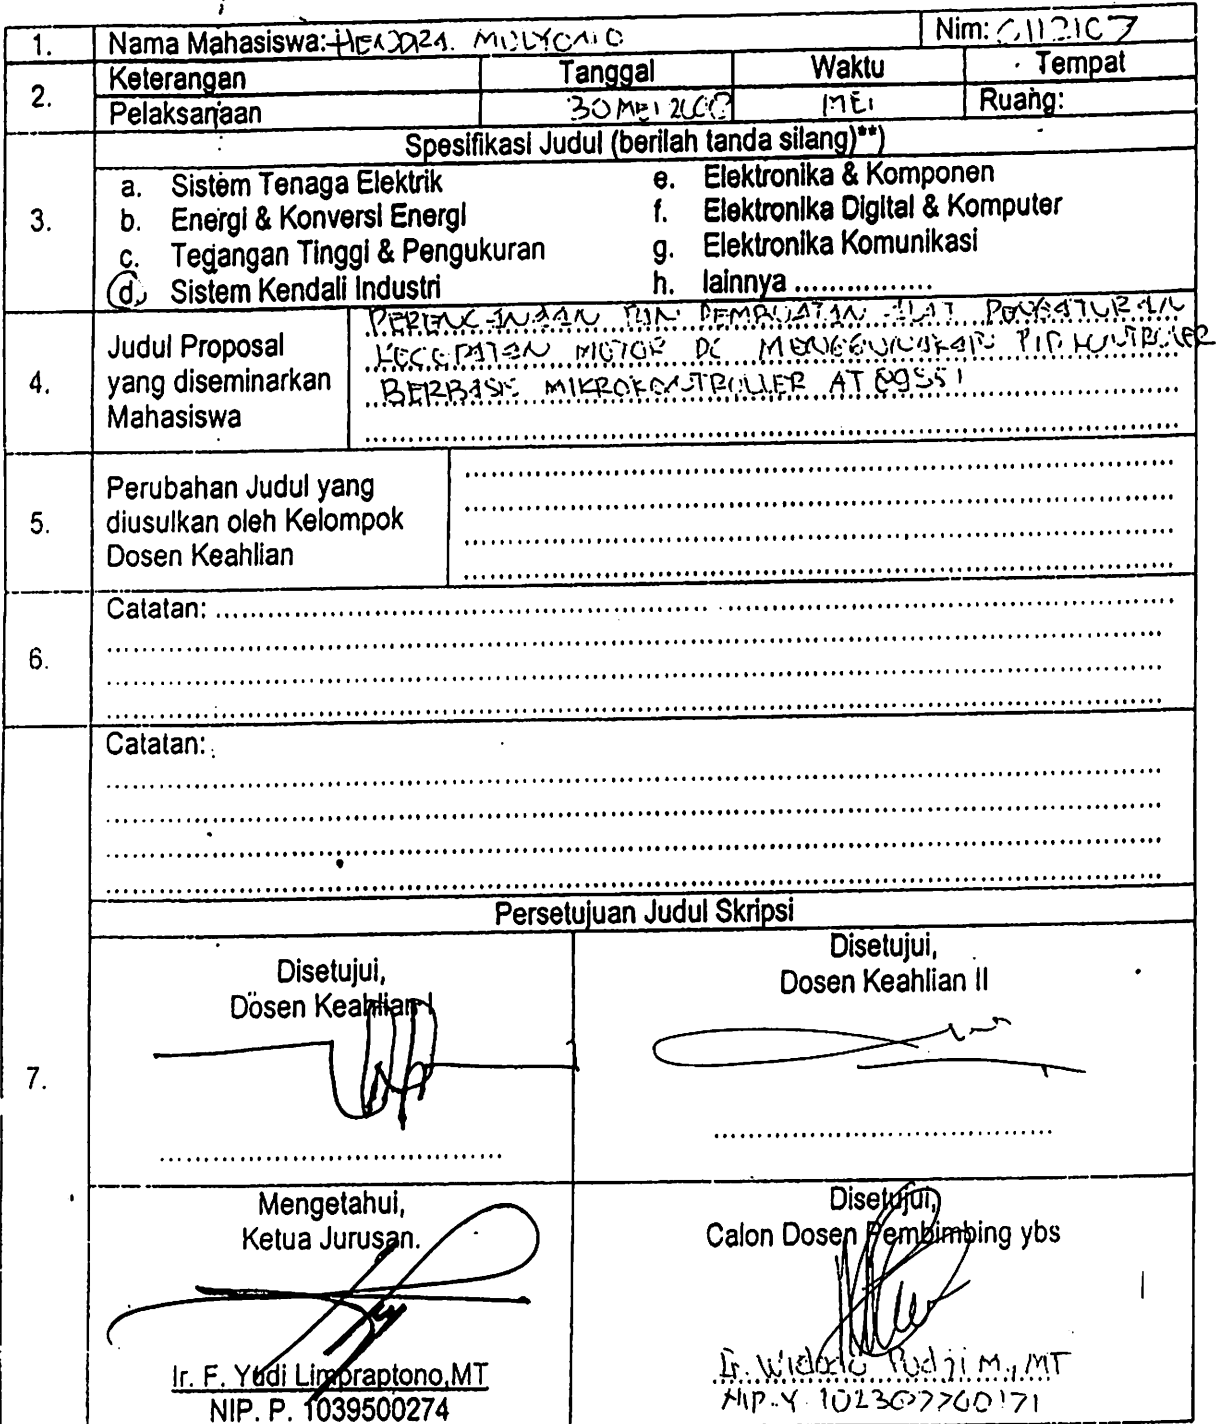 1. Nama Mahasiswa: HENDRA MULYONO Nim: 0112107
2. Keterangan Tanggal Waktu Tempat
Pelaksanaan 30 MEI 2008 MEI Ruang:
3. Spesifikasi Judul (berilah tanda silang)**)
a. Sistem Tenaga Elektrik e. Elektronika & Komponen
b. Energi & Konversi Energi f. Elektronika Digital & Komputer
c. Tegangan Tinggi & Pengukuran g. Elektronika Komunikasi
d. Sistem Kendali Industri h. lainnya ................
4. Judul Proposal yang diseminarkan Mahasiswa
PERENCANAAN DAN PEMBUATAN ALAT PENGATURAN
KECEPATAN MOTOR DC MENGGUNAKAN PID KONTROLLER
BERBASIS MIKROKONTROLLER AT89S51
5. Perubahan Judul yang
diusulkan oleh Kelompok
Dosen Keahlian
6. Catatan:
Catatan:
Persetujuan Judul Skripsi
7. Disetujui,
Dosen Keahlian I
Disetujui,
Dosen Keahlian II
Mengetahui,
Ketua Jurusan.
Ir. F. Yudi Limpraptono,MT
NIP. P. 1039500274
Disetujui,
Calon Dosen Pembimbing ybs
Ir. Widodo Pudji M., MT
NIP.Y. 102